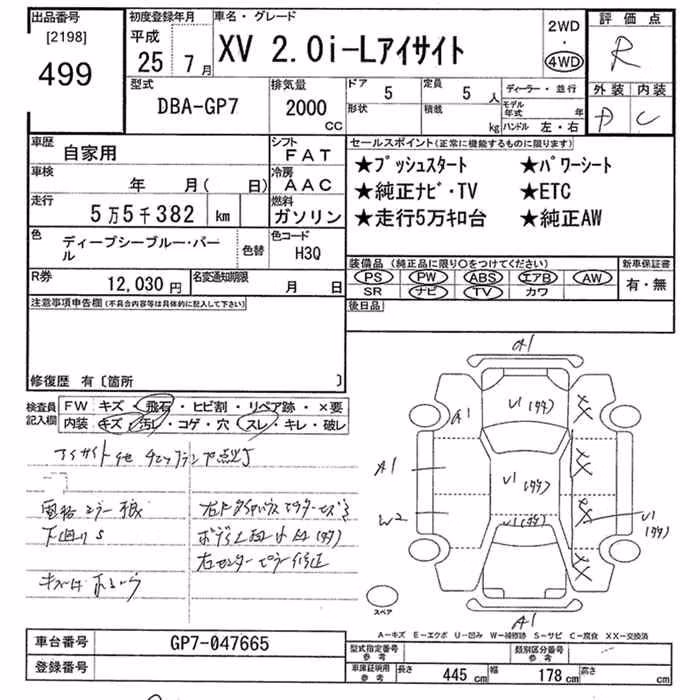 出品番号
[2198]
499
初度登録年月
平成
25年 7月
車名・グレード
XV 2.0i-Lアイサイト
2WD
・
4WD
評価点
R
外装 内装
D C
型式
DBA-GP7
排気量
2000
CC
ドア 5
形状
定員 5 人
積載 kg
ディーラー・並行
モデル年式 年
ハンドル 左・右
車歴
自家用
シフト
FAT
車検
年 月( 日)
冷房
AAC
走行
5万5千382 km
燃料
ガソリン
色
ディープシーブルー・パール
色替
色コード
H3Q
R券
12,030 円
名変通知期限
月 日
セールスポイント(正常に機能するものに限ります)
★プッシュスタート ★パワーシート
★純正ナビ・TV ★ETC
★走行5万キロ台 ★純正AW
装備品 (純正品に限り○をつけてください)
PS PW ABS エアB AW
SR ナビ TV カワ
新車保証書
有・無
後日品
注意事項申告欄(不具合内容等は具体的に記入して下さい)
修復歴 有〔箇所 〕
検査員
記入欄
FW キズ・飛石・ヒビ割・リペア跡・×要
内装 キズ・汚レ・コゲ・穴・スレ・キレ・破レ
アイサイト他 チェックランプ点灯
下廻りS
A1
A1
U1(タタ)
XX
A1
U1(タタ)
XX
W2
U1(タタ)
XX
U1
(タタ)
XX
A1
スペア
A-キズ E-エクボ U-凹み W-補修跡 S-サビ C-腐食 XX-交換済
車台番号
GP7-047665
登録番号
型式指定番号
参考
類別区分番号
参考
車庫証明用
参考
長さ 445 cm 幅 178 cm 高さ cm